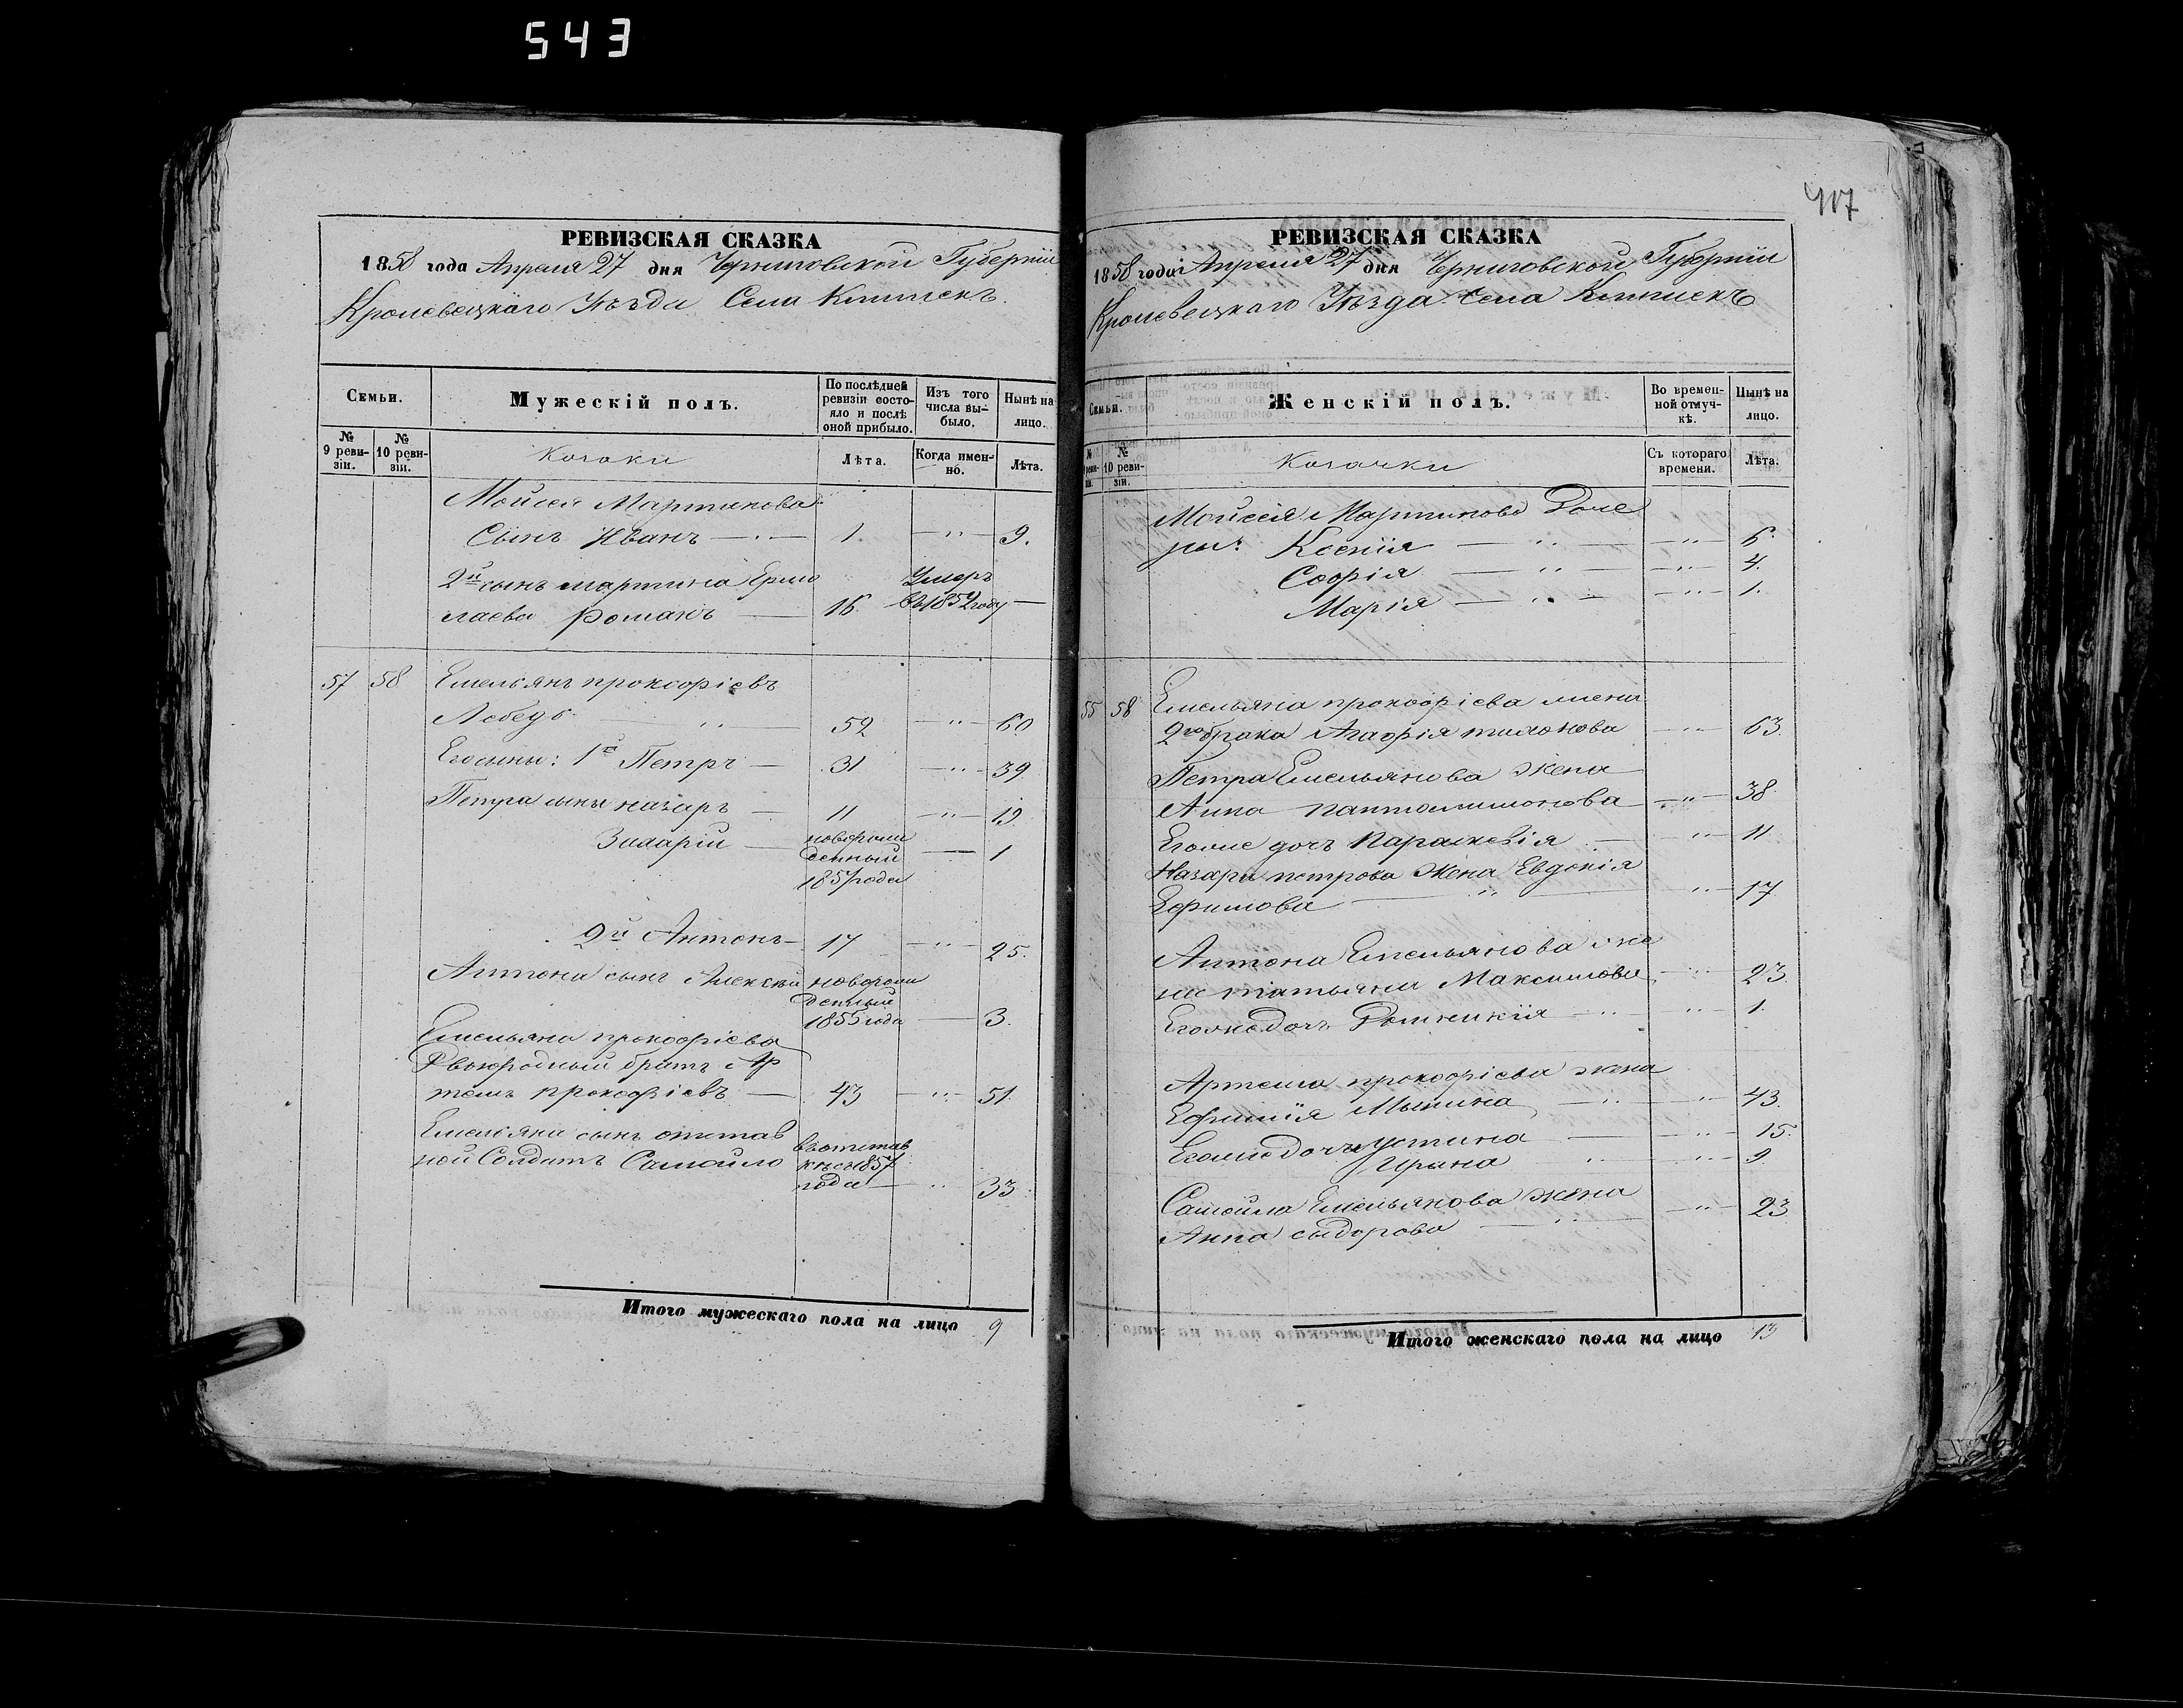 543
РЕВИЗСКАЯ СКАЗКА
1858 года Апреля 27 дня Черниговской Губернiи
Кролевецкаго Уѣзда Села Клишекъ
Семьи.
Мужескiй полъ.
По послѣдней ревизiи состо-
яло и послѣ
оной прибыло.
Изъ того
числа вы-
было.
Нынѣ на
лицо.
№
9 реви-
зiи.
№
10 реви-
зiи.
Козаки
Лѣта.
Когда имен-
но.
Лѣта.
Мойсея Мартинова
Сынъ Иванъ 1. 9.
2й сынъ мартина Ермо Умеръ
лаева Романъ 16. въ 1852 году
57 58 Емельянъ прокофiевъ
Лебедь 52 60
Его сыны: 1й Петръ 31 39
Петра сыны назаръ 11 19
Захарiй новорож
денный 1
1857 года
2й Антонъ 17 25.
Антона сынъ Алексѣй новорож
денный
1855 года 3.
Емельяна прокофiева
Двоюродный братъ Ар
темъ прокофiевъ 43 51.
Емельяна сынъ отстав
ной Солдатъ Самойло въ отстав
кѣ съ 1857
года 33
Итого мужескаго пола на лицо 9
417
РЕВИЗСКАЯ СКАЗКА
1858 года Апреля 27 дня Черниговской Губернiи
Кролевецкаго Уѣзда села Клишекъ
Семьи.
Женскiй полъ.
Во времен-
ной отлуч-
кѣ.
Нынѣ на
лицо.
№
реви-
зiи.
№
10 реви-
зiи.
Козачки
Съ котораго
времени.
Лѣта.
Мойсея Мартинова Доче
ры: Ксенiя 6.
Софiя 4.
Марiя 1.
55 58 Емельяна прокофiева жена
2го брака Агафiя тихонова 63.
Петра Емельянова жена
Анна пантелимонова 38.
Его же дочъ Параскевiя 11
Назара петрова жена Евдокiя
Ефимова 17
Антона Емельянова же
на татьяна Максимова 23
Его же дочъ 1.
Артема прокофiева жена
Ефимiя 43.
Его же дочъ Устина 15.
Ирина 9
Самойла Емельянова жена
Анна сыдорова 23.
Итого женскаго пола на лицо 13